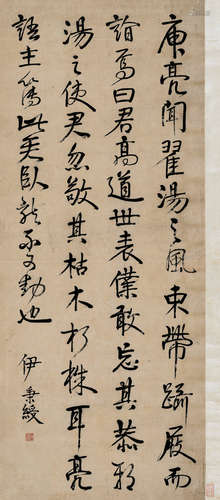 庾亮聞翟湯之風束帶躡屐而
詣焉曰君高道世表僕敢忘其恭翔
湯之使君忽敬其枯木朽株耳亮
語主簿此君臥龍不可動也
伊秉綬